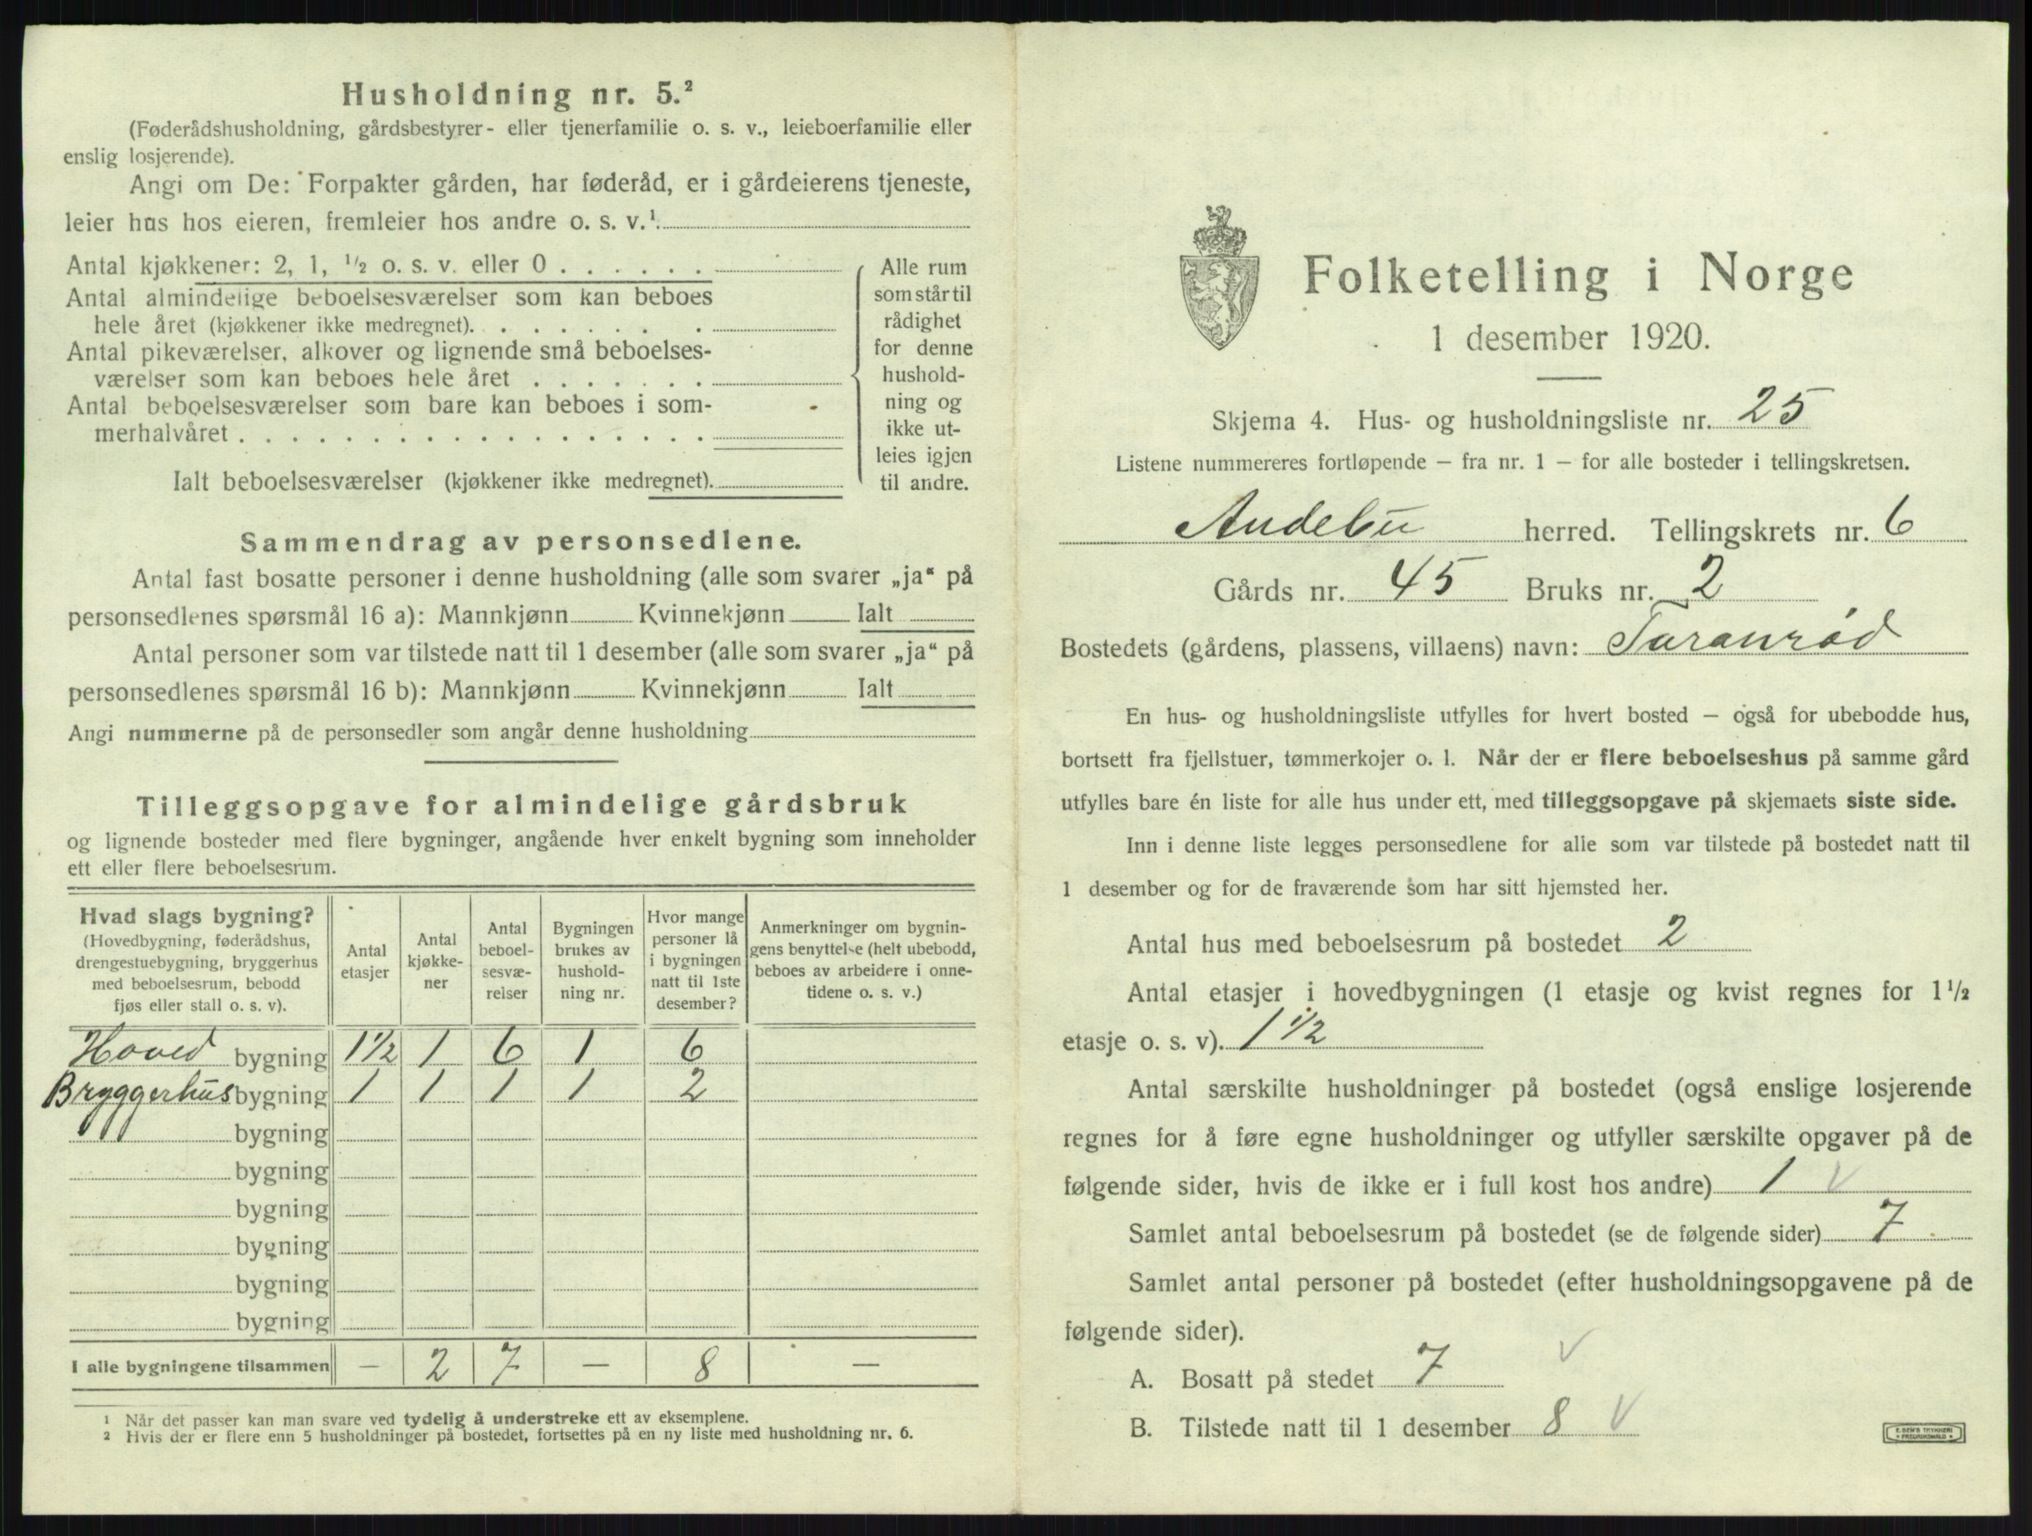 Husholdning nr. 5.²
(Føderådshusholdning, gårdsbestyrer- eller tjenerfamilie o. s. v., leieboerfamilie eller
enslig losjerende).
Angi om De: Forpakter gården, har føderåd, er i gårdeierens tjeneste,
leier hus hos eieren, fremleier hos andre o. s. v.¹
Antal kjøkkener: 2, 1, ½ o. s. v. eller 0 . . . . . .
Antal almindelige beboelsesværelser som kan beboes
hele året (kjøkkener ikke medregnet). . . . . . . .
Antal pikeværelser, alkover og lignende små beboelses-
værelser som kan beboes hele året . . . . . . .
Antal beboelsesværelser som bare kan beboes i som-
merhalvåret . . . . . . . . . . . . . . . . . .
Ialt beboelsesværelser (kjøkkener ikke medregnet).
Alle rum
som står til
rådighet
for denne
hushold-
ning og
ikke ut-
leies igjen
til andre.
Sammendrag av personsedlene.
Antal fast bosatte personer i denne husholdning (alle som svarer „ja“ på
personsedlenes spørsmål 16 a): Mannkjønn Kvinnekjønn Ialt
Antal personer som var tilstede natt til 1 desember (alle som svarer „ja“ på
personsedlenes spørsmål 16 b): Mannkjønn Kvinnekjønn Ialt
Angi nummerne på de personsedler som angår denne husholdning
Tilleggsopgave for almindelige gårdsbruk
og lignende bosteder med flere bygninger, angående hver enkelt bygning som inneholder
ett eller flere beboelsesrum.
Hvad slags bygning?
(Hovedbygning, føderådshus,
drengestuebygning, bryggerhus
med beboelsesrum, bebodd
fjøs eller stall o. s. v).
Antal
etasjer
Antal
kjøkke-
ner
Antal
beboel-
sesvæ-
relser
Bygningen
brukes av
hushold-
ning nr.
Hvor mange
personer lå
i bygningen
natt til 1ste
desember?
Anmerkninger om bygnin-
gens benyttelse (helt ubebodd,
beboes av arbeidere i onne-
tidene o. s. v.)
Hoved bygning 1½ 1 6 1 6
Bryggerhus bygning 1 1 1 1 2
bygning
bygning
bygning
bygning
bygning
bygning
I alle bygningene tilsammen — 2 7 — 8 —
1 Når det passer kan man svare ved tydelig å understreke ett av eksemplene.
2 Hvis der er flere enn 5 husholdninger på bostedet, fortsettes på en ny liste med husholdning nr. 6.
Folketelling i Norge
1 desember 1920.
Skjema 4. Hus- og husholdningsliste nr. 25
Listene nummereres fortløpende — fra nr. 1 — for alle bosteder i tellingskretsen.
Andebu herred. Tellingskrets nr. 6
Gårds nr. 45 Bruks nr. 2
Bostedets (gårdens, plassens, villaens) navn: Taranrød
En hus- og husholdningsliste utfylles for hvert bosted — også for ubebodde hus,
bortsett fra fjellstuer, tømmerkojer o. l. Når der er flere beboelseshus på samme gård
utfylles bare én liste for alle hus under ett, med tilleggsopgave på skjemaets siste side.
Inn i denne liste legges personsedlene for alle som var tilstede på bostedet natt til
1 desember og for de fraværende som har sitt hjemsted her.
Antal hus med beboelsesrum på bostedet 2
Antal etasjer i hovedbygningen (1 etasje og kvist regnes for 1½
etasje o. s. v). 1½
Antal særskilte husholdninger på bostedet (også enslige losjerende
regnes for å føre egne husholdninger og utfyller særskilte opgaver på de
følgende sider, hvis de ikke er i full kost hos andre) 1 √
Samlet antal beboelsesrum på bostedet (se de følgende sider) 7
Samlet antal personer på bostedet (efter husholdningsopgavene på de
følgende sider).
A. Bosatt på stedet 7 √
B. Tilstede natt til 1 desember 8 √